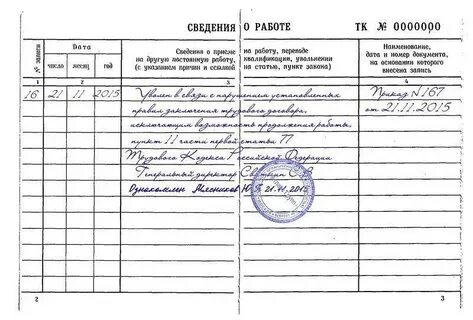 СВЕДЕНИЯ О РАБОТЕ ТК № 0000000
№ записи
Дата
число
месяц
год
Сведения о приеме на работу, переводе
на другую постоянную работу, квалификации, увольнении
(с указанием причин и ссылкой на статью, пункт закона)
Наименование,
дата и номер документа,
на основании которого
внесена запись
1 2 3 4
16 21 11 2015 Уволен в связи с нарушением установленных Приказ №167
правил заключения трудового договора, от 21.11.2015
исключающим возможность продолжения работы,
пункт 11 части первой статьи 77
Трудового Кодекса Российской Федерации
Генеральный директор
Ознакомлен Мясников 21.11.2015
2 3